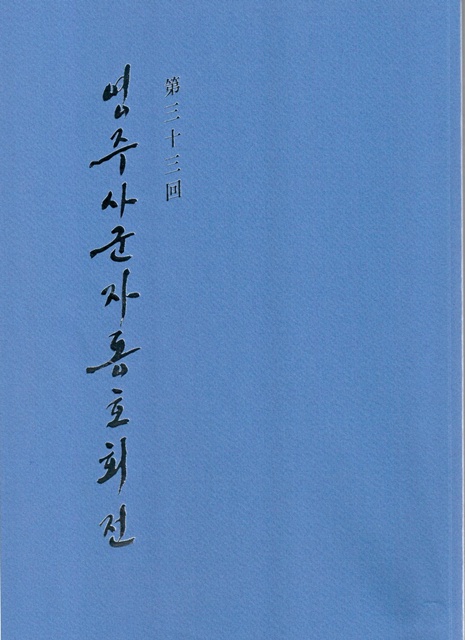 第三十三回
염주사군자동호회전